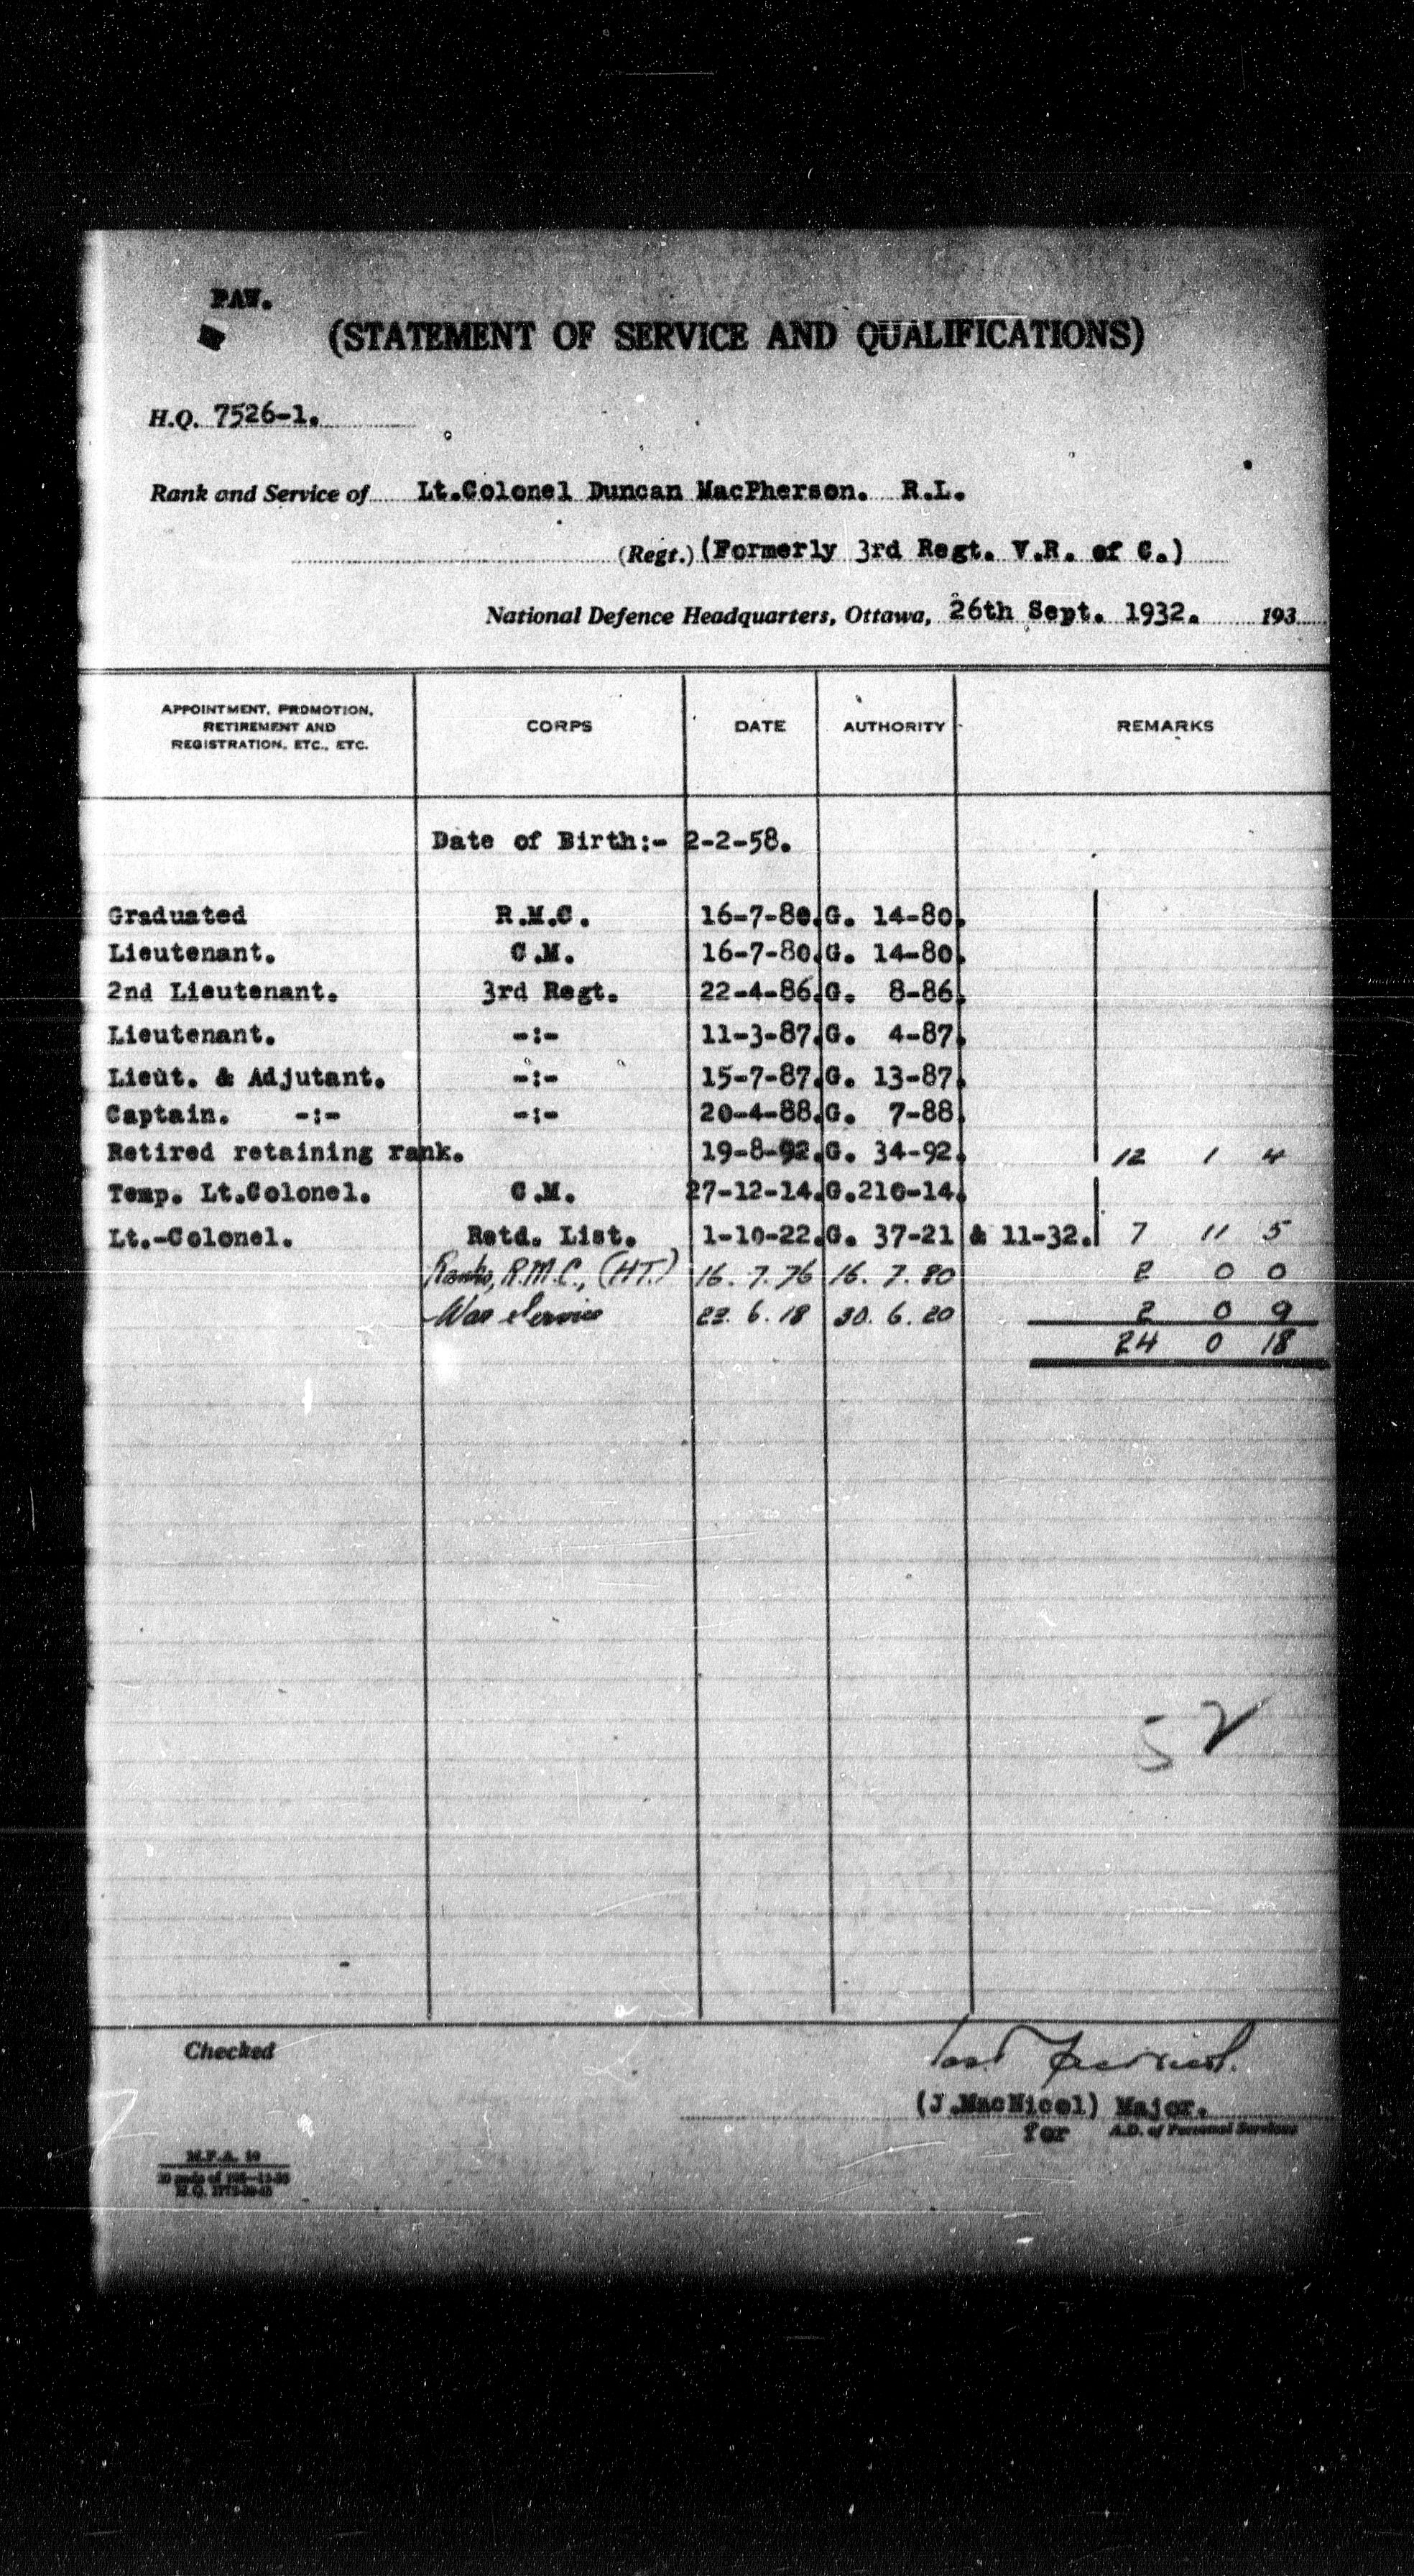 PAW.
(STATEMENT OF SERVICE AND QUALIFICATIONS)
H.Q. 7526-1.
Rank and Service of Lt.Colonel Duncan MacPherson. R.L.
(Regt.) (Formerly 3rd Regt. V.R. of C.)
National Defence Headquarters, Ottawa, 26th Sept. 1932. 193
APPOINTMENT, PROMOTION, RETIREMENT AND REGISTRATION, ETC., ETC. CORPS DATE AUTHORITY REMARKS
Date of Birth:- 2-2-58.
Graduated R.M.C. 16-7-80. G. 14-80.
Lieutenant. C.M. 16-7-80. G. 14-80.
2nd Lieutenant. 3rd Regt. 22-4-86. G. 8-86.
Lieutenant. -:- 11-3-87. G. 4-87.
Lieut. & Adjutant. -:- 15-7-87. G. 13-87.
Captain. -:- -:- 20-4-88. G. 7-88.
Retired retaining rank. 19-8-92. G. 34-92. 12 1 4
Temp. Lt.Colonel. C.M. 27-12-14. G.210-14.
Lt.-Colonel. Retd. List. 1-10-22. G. 37-21 & 11-32. 7 11 5
Ranks, R.M.C., (HT.) 16. 7. 76 16. 7. 80 2 0 0
War Service 22. 6. 18 30. 6. 20 2 0 9
24 0 18
52
Checked
(J.MacNicol) Major.
for A.D. of Personal Services